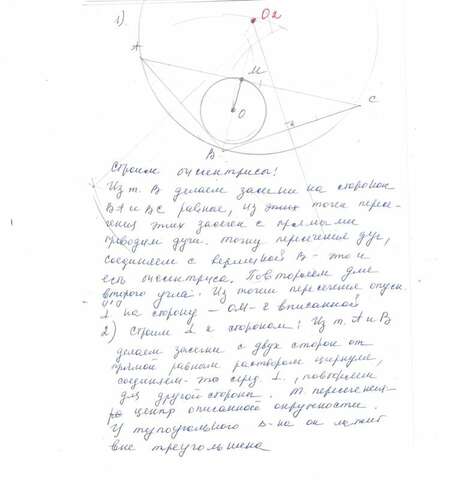 1).
O2
A
M
C
O
B
Строим биссектрисы!
Из т. B делаем засечки на сторонах
BA и BC равные, из этих точек пересе-
чения этих засечек с прямыми
проводим дуги. точку пересечения дуг,
соединяем с вершиной B - это и
есть биссектриса. Повторяем для
второго угла. Из точки пересечения опуск.
⊥ на сторону - OM - r вписанной
2) Строим ⊥ к сторонам! Из т. A и B
делаем засечки с двух сторон от
прямой равным раствором циркуля,
соединяем - это серед. ⊥., повторяем
для другой стороны. т. пересечения -
центр описанной окружности.
У тупоугольного Δ-ка он лежит
вне треугольника